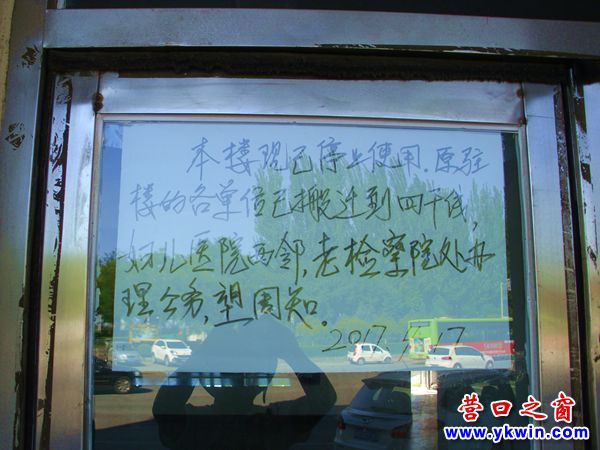 本楼现已停止使用.原驻
楼的各单位已搬迁到四干线,
妇儿医院西邻,老检察院处办
理公务,望周知.
2017.5.17
营口之窗
www.ykwin.com